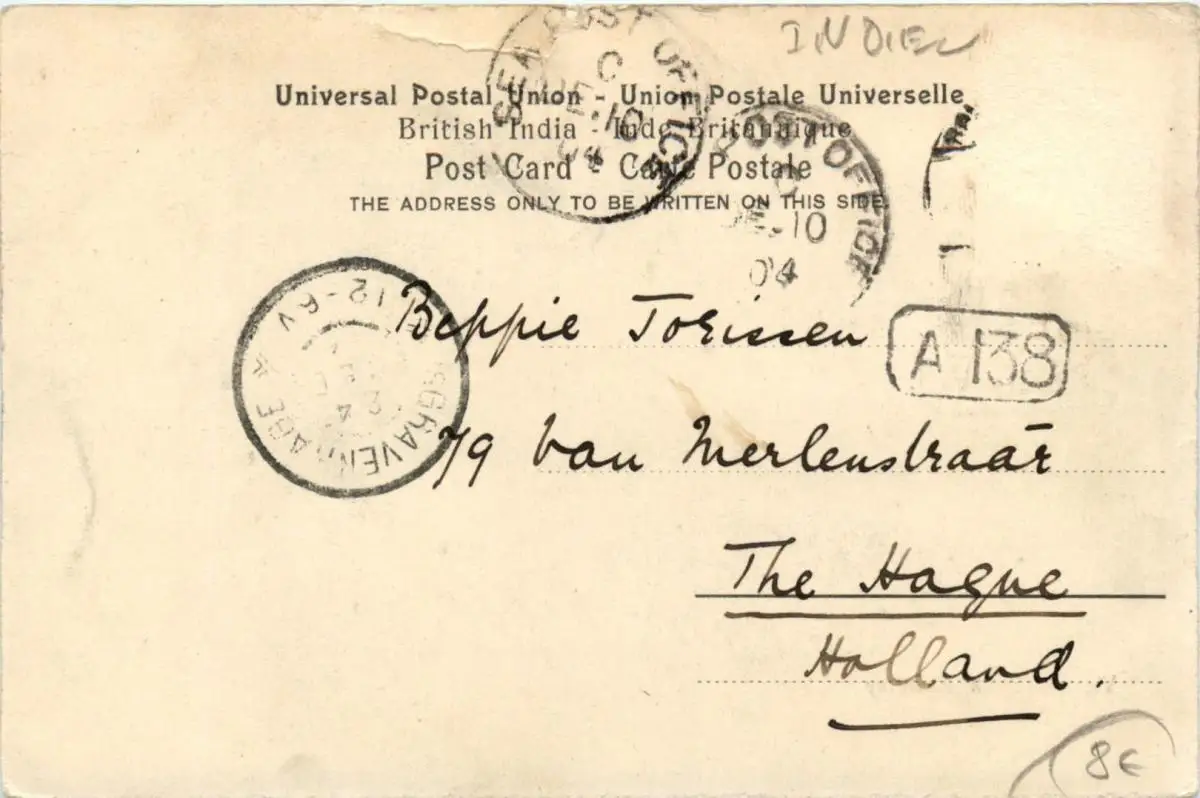 INDIEN
SEA POST OFFICE
C
DE 10
04
Universal Postal Union - Union Postale Universelle
British India - Inde Britannique
Post Card - Carte Postale
THE ADDRESS ONLY TO BE WRITTEN ON THIS SIDE
POST OFFICE
C
DE.10
04
12-6V
'SGRAVENHAGE
Beppie Jorissen
A 138
79 van Merlenstraat
The Hague
Holland.
8€